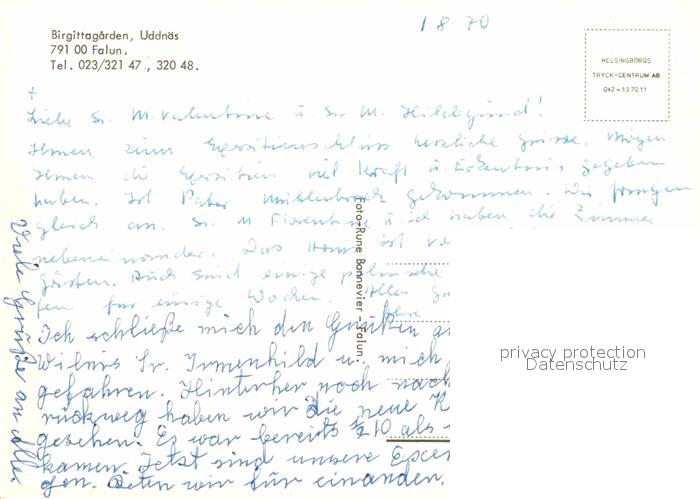 1 8 70
Birgittagården, Uddnäs
791 00 Falun.
Tel. 023/321 47, 320 48.
HELSINGBORGS
TRYCK-CENTRUM AB
042 - 13 70 11
+
Liebe Sr. M. Valentine u. Sr. M. Hildegund!
Ihnen zum Exerzitienschluss herzliche Grüsse. Mögen
Ihnen die Exerzitien viel Kraft u. Erkenntnis gegeben
haben. Ist Pater gekommen. Wir fangen
gleich an. Sr. M Florentine u. ich haben die Zimmer
nebeneinander. Das Haus ist
Gästen. Auch sind einige polnische
für einige Wochen. Alles
Ich schließe mich den Grüßen an
Wilnis Sr. Irmenhild u. mich
gefahren. Hinterher noch nach
rückweg haben wir die neue K
gesehen. Es war bereits ½ 10 als
kamen. Jetzt sind unsere Exer
gen. Beten wir für einander.
Viele Grüße an alle
Foto-Rune Bonnevier - Falun.
privacy protection
Datenschutz